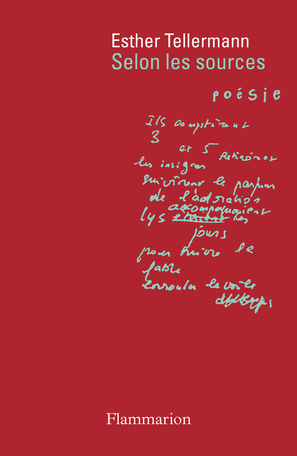 Esther Tellermann
Selon les sources
poésie
Ils comptèrent
3
et 5 Retinrent
les insignes
suivirent le parfum
de l'adoration
accompagnaient
lys les
jours
pour suivre le
sable
le voile
Flammarion